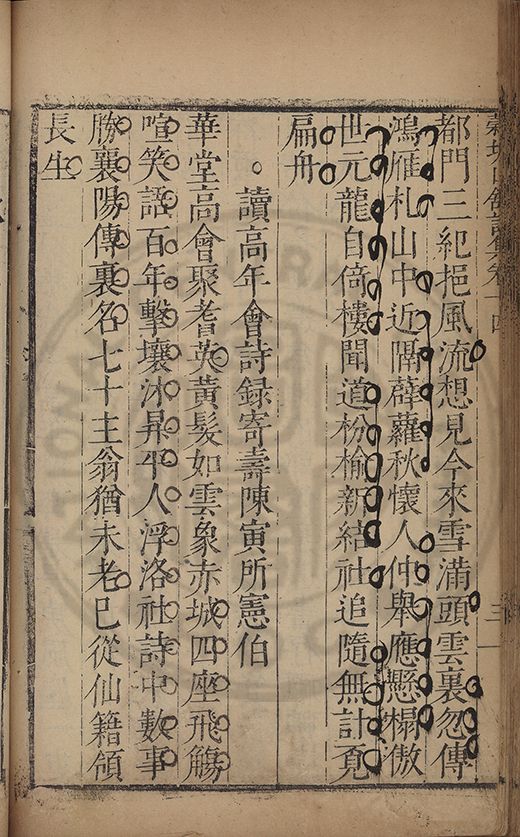 都門三紀挹風流想見今來雪滿頭雲裏忽傳
鴻雁札山中近隔薜蘿秋懷人仲舉應懸榻傲
世元龍自倚樓聞道枌榆新結社追隨無計覓
扁舟
讀高年會詩録寄壽陳寅所憲伯
華堂高會聚耆英黃髮如雲象赤城四座飛觴
喧笑語百年擊壤沐昇平人浮洛社詩中數事
勝襄陽傳裏名七十主翁猶未老已從仙籍領
長生